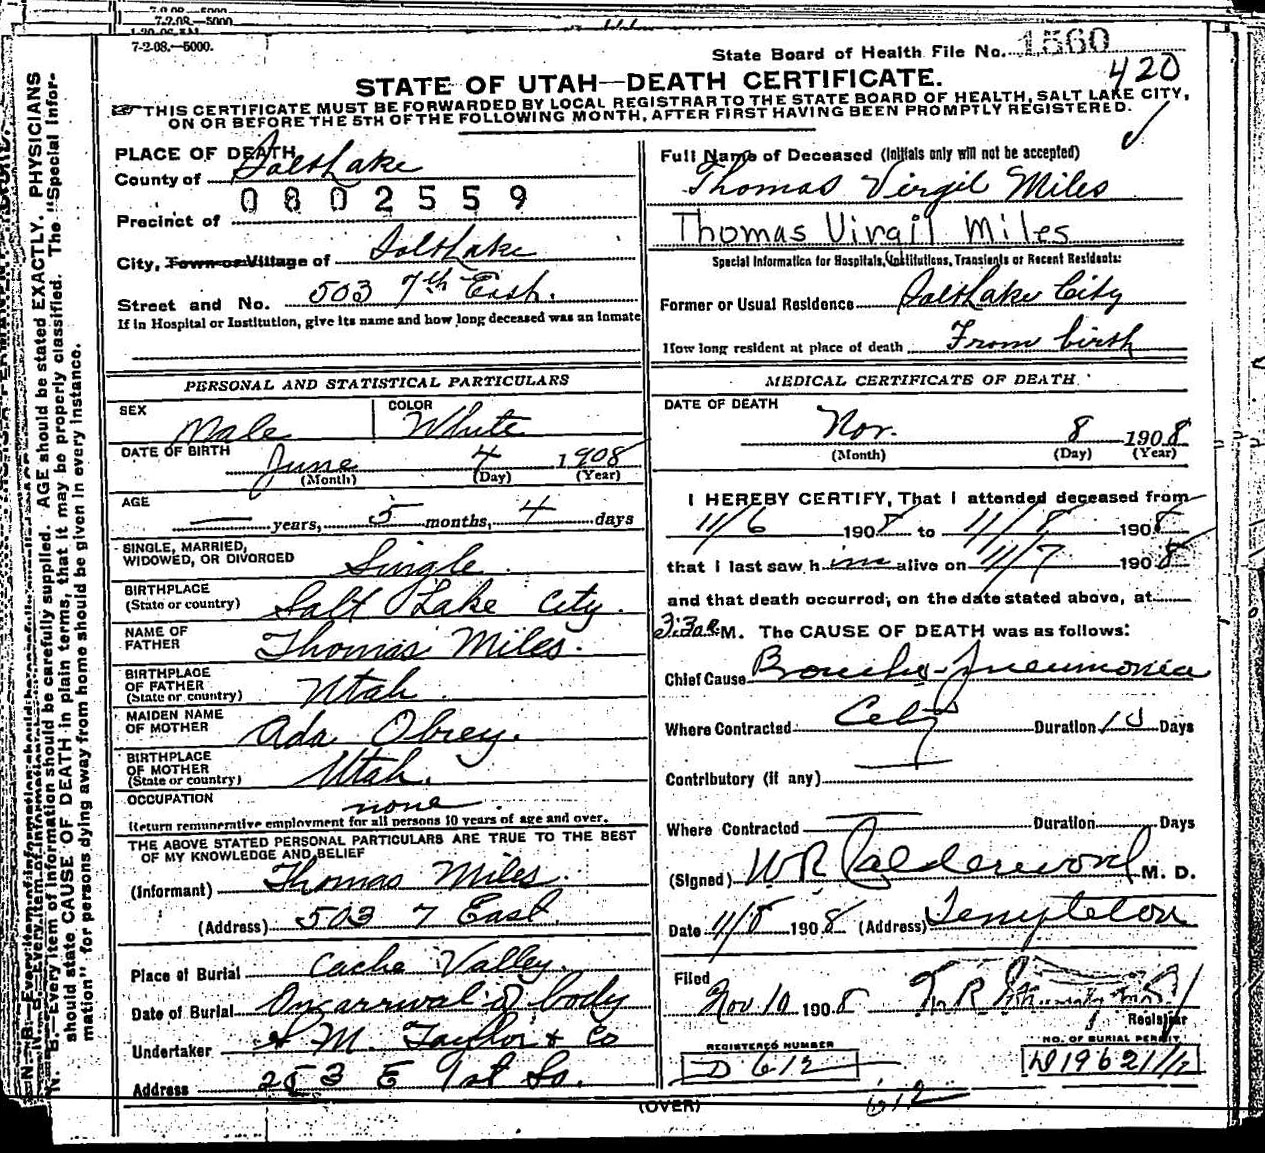 7-2-08.—5000.
State Board of Health File No. 1560
420
STATE OF UTAH—DEATH CERTIFICATE.
THIS CERTIFICATE MUST BE FORWARDED BY LOCAL REGISTRAR TO THE STATE BOARD OF HEALTH, SALT LAKE CITY,
ON OR BEFORE THE 5TH OF THE FOLLOWING MONTH, AFTER FIRST HAVING BEEN PROMPTLY REGISTERED.
PLACE OF DEATH
County of Salt Lake
0802559
Precinct of
City, Town or Village of Salt Lake
Street and No. 503 7th East.
If in Hospital or Institution, give its name and how long deceased was an inmate
Full Name of Deceased (Initials only will not be accepted)
Thomas Virgil Miles
Thomas Virgil Miles
Special Information for Hospitals, Institutions, Transients or Recent Residents:
Former or Usual Residence Salt Lake City
How long resident at place of death From birth
PERSONAL AND STATISTICAL PARTICULARS
SEX Male
COLOR White
DATE OF BIRTH June 4 1908
(Month) (Day) (Year)
AGE — years, 5 months, 4 days
SINGLE, MARRIED,
WIDOWED, OR DIVORCED Single
BIRTHPLACE
(State or country) Salt Lake City.
NAME OF
FATHER Thomas Miles.
BIRTHPLACE
OF FATHER
(State or country) Utah
MAIDEN NAME
OF MOTHER Ada Obrey.
BIRTHPLACE
OF MOTHER
(State or country) Utah.
OCCUPATION none
Return remunerative employment for all persons 10 years of age and over.
THE ABOVE STATED PERSONAL PARTICULARS ARE TRUE TO THE BEST
OF MY KNOWLEDGE AND BELIEF
(Informant) Thomas Miles.
(Address) 503 7 East
Place of Burial Cache Valley.
Date of Burial On arrival of body
Undertaker S. M. Taylor & Co
Address 253 E 1st So.
MEDICAL CERTIFICATE OF DEATH
DATE OF DEATH
Nov. 8 1908
(Month) (Day) (Year)
I HEREBY CERTIFY, That I attended deceased from
11/6 1908 to 11/8 1908
that I last saw him alive on 11/7 1908
and that death occurred, on the date stated above, at
3:30 a. M. The CAUSE OF DEATH was as follows:
Chief Cause Broncho-pneumonia
Where Contracted City Duration 10 Days
Contributory (if any) —
Where Contracted — Duration Days
(Signed) W R Calderwood M. D.
Date 11/8 1908 (Address) Templeton
Filed
Nov 10 1908
Registrar
REGISTERED NUMBER
D 612
NO. OF BURIAL PERMIT
612
(OVER)
N. B.—Every item of information should be carefully supplied. AGE should be stated EXACTLY. PHYSICIANS
should state CAUSE OF DEATH in plain terms, that it may be properly classified. The "Special Infor-
mation" for persons dying away from home should be given in every instance.